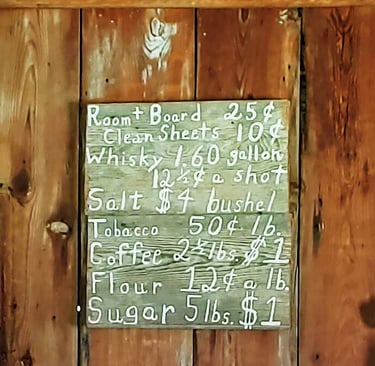 Room + Board 25¢
Clean Sheets 10¢
Whisky 1.60 gallon
12½¢ a shot
Salt $4 bushel
Tobacco 50¢ lb.
Coffee 2½ lbs. $1
Flour 12¢ a lb.
Sugar 5 lbs. $1